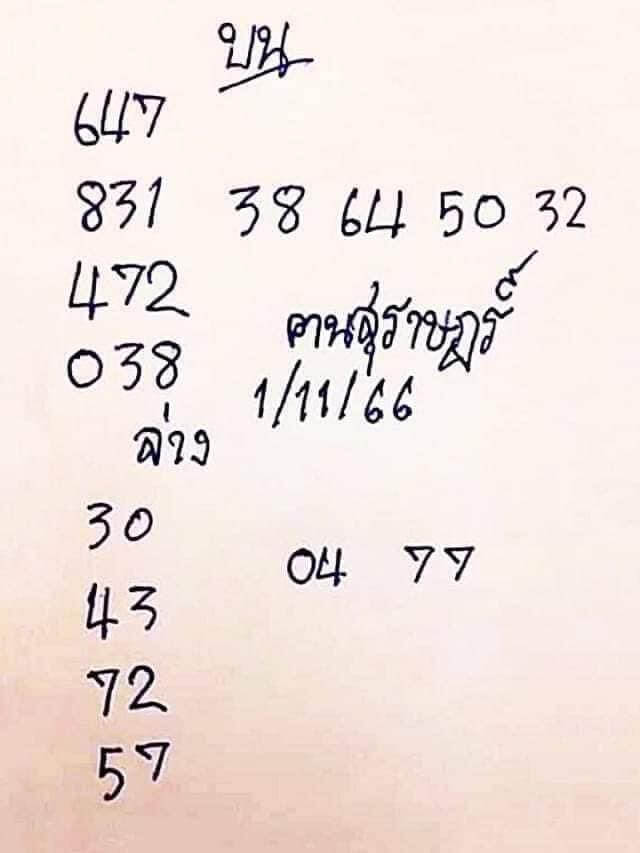 บน
647
831 38 64 50 32
472
ฅนสุราษฎร์
038
1/11/66
ล่าง
30
04 77
43
72
57